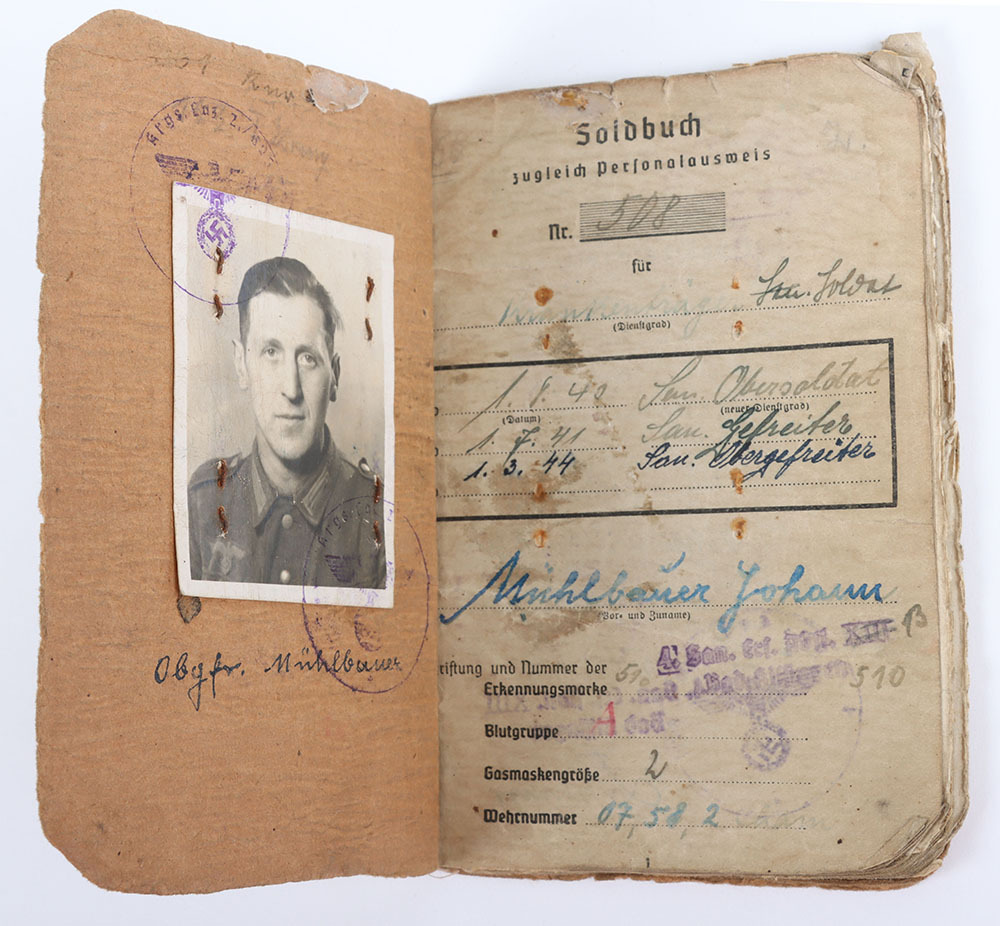 Krgs. Laz.
Obgfr. Mühlbauer
Soldbuch
zugleich Personalausweis
Nr. 508
für
San. Soldat
(Dienstgrad)
1. 8. 40 San. Obersoldat
(Datum) (neuer Dienstgrad)
1. 7. 41 San. Gefreiter
1. 3. 44 San. Obergefreiter
Mühlbauer Johann
(Vor- und Zuname)
4. San. Ers. XIII B
riftung und Nummer der
Erkennungsmarke 510
Blutgruppe A
Gasmaskengröße 2
Wehrnummer 07, 58, 2
1